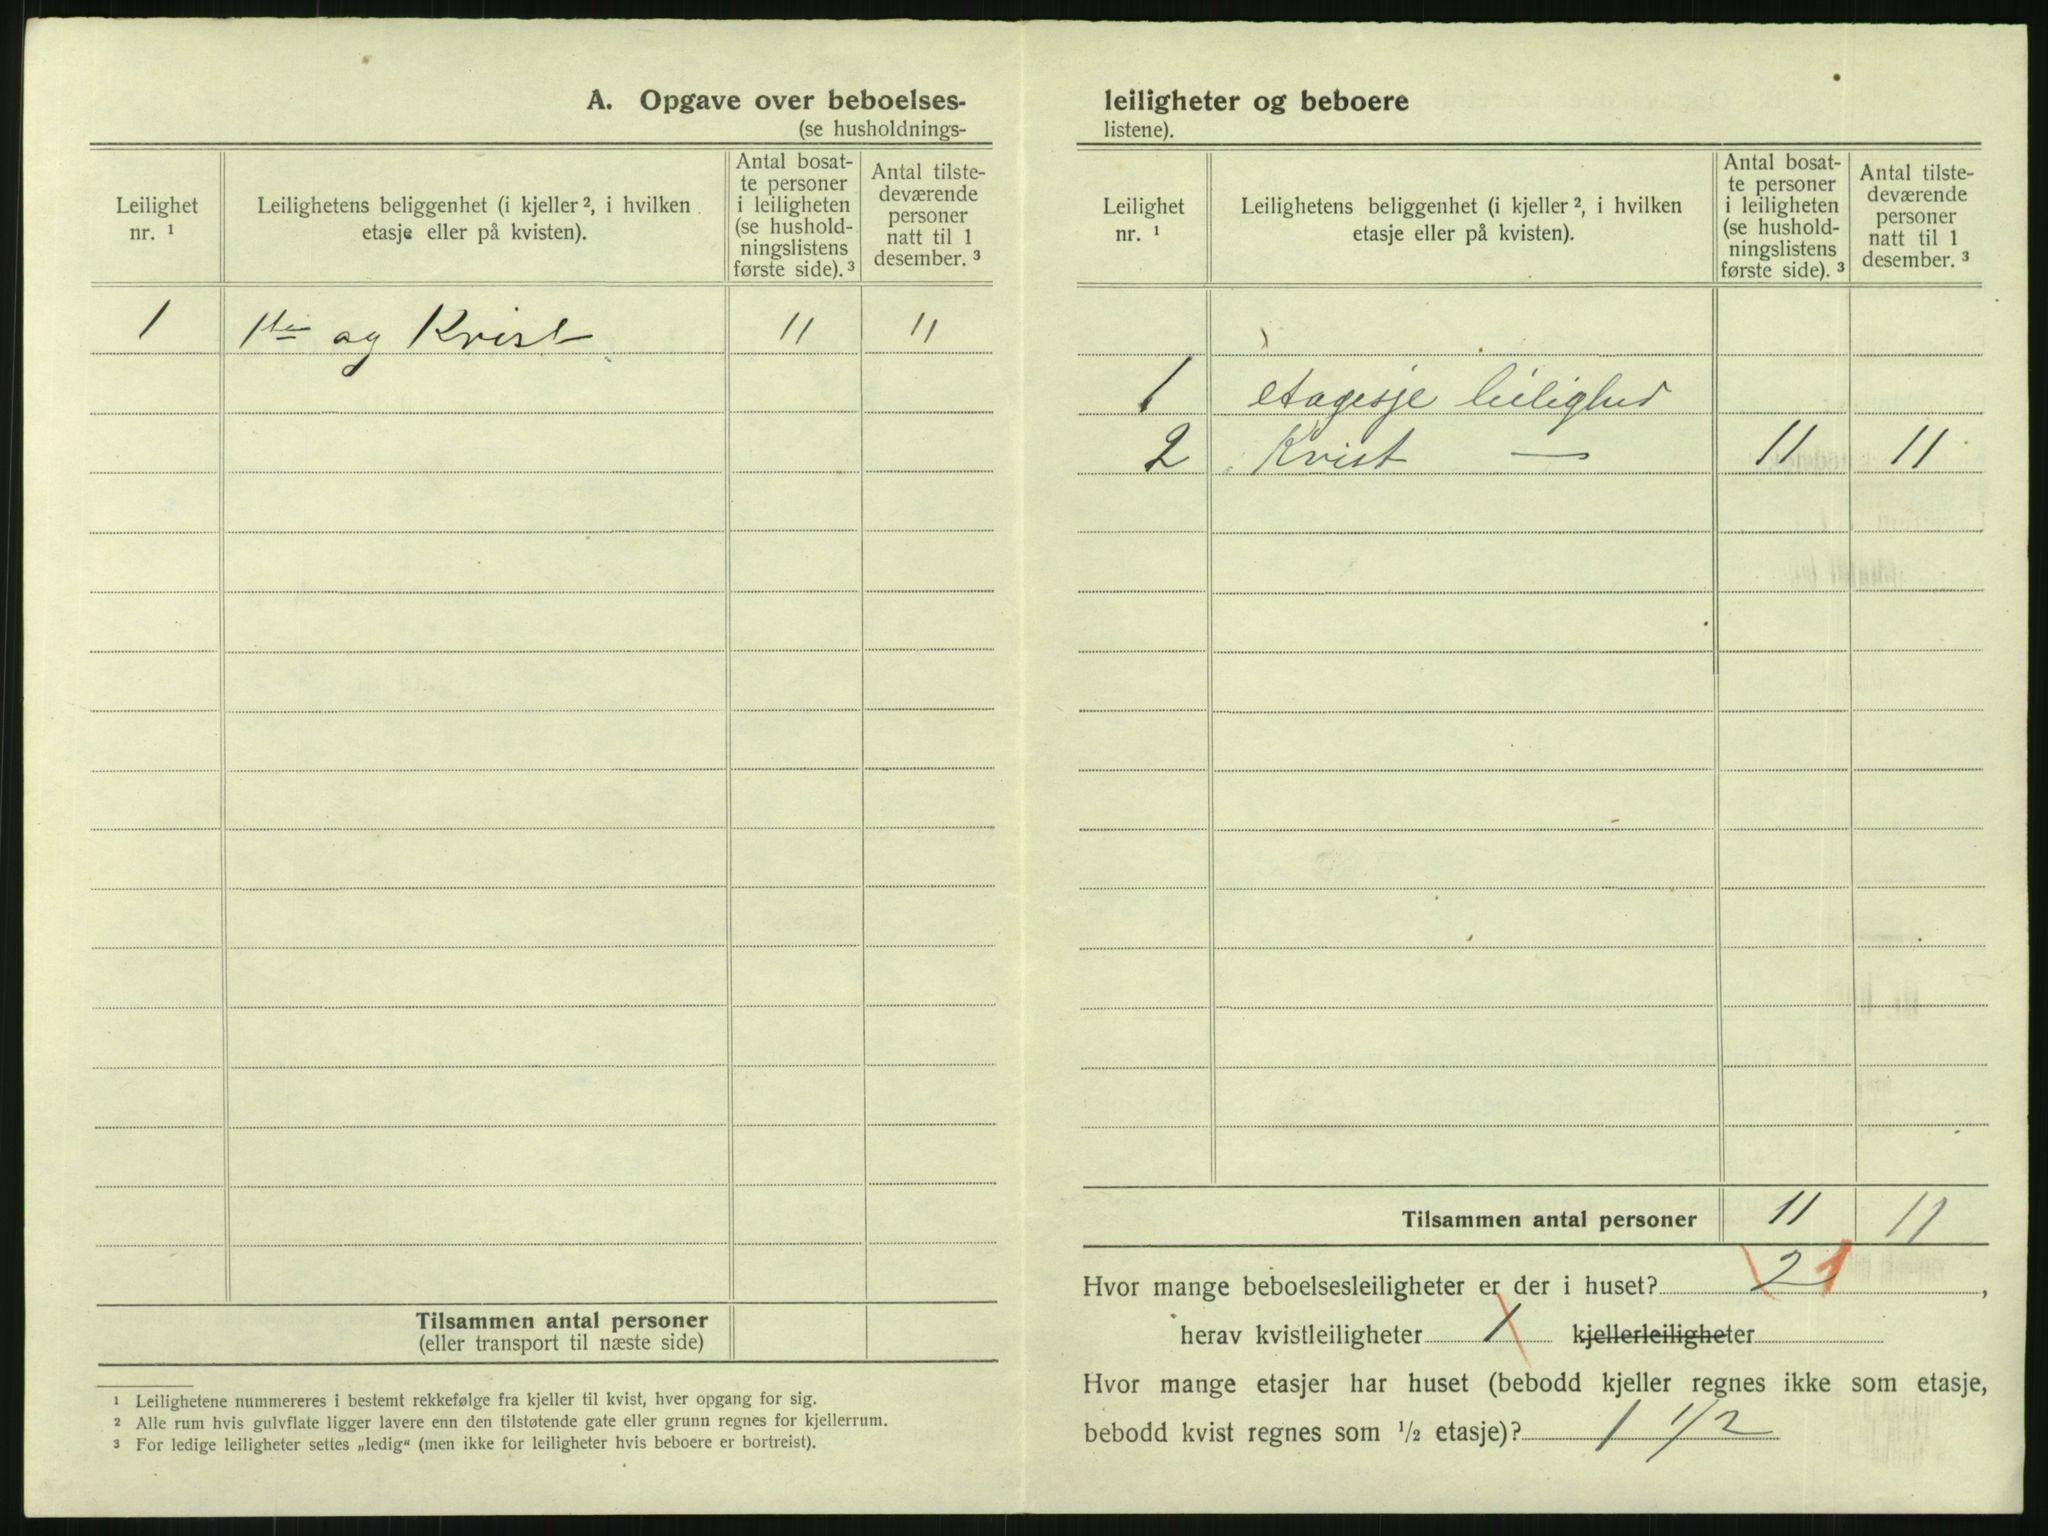 A. Opgave over beboelses-
(se husholdnings-
Leilighet
nr. ¹
Leilighetens beliggenhet (i kjeller ², i hvilken
etasje eller på kvisten).
Antal bosat-
te personer
i leiligheten
(se hushold-
ningslistens
første side). ³
Antal tilste-
deværende
personer
natt til 1
desember. ³
1 1ste og Kvist 11 11
Tilsammen antal personer
(eller transport til næste side)
¹ Leilighetene nummereres i bestemt rekkefølge fra kjeller til kvist, hver opgang for sig.
² Alle rum hvis gulvflate ligger lavere enn den tilstøtende gate eller grunn regnes for kjellerrum.
³ For ledige leiligheter settes „ledig“ (men ikke for leiligheter hvis beboere er bortreist).
leiligheter og beboere
listene).
Leilighet
nr. ¹
Leilighetens beliggenhet (i kjeller ², i hvilken
etasje eller på kvisten).
Antal bosat-
te personer
i leiligheten
(se hushold-
ningslistens
første side). ³
Antal tilste-
deværende
personer
natt til 1
desember. ³
1 etagesje leilighed
2 Kvist — 11 11
Tilsammen antal personer 11 11
Hvor mange beboelsesleiligheter er der i huset? 2 1,
herav kvistleiligheter 1 kjellerleiligheter
Hvor mange etasjer har huset (bebodd kjeller regnes ikke som etasje,
bebodd kvist regnes som ½ etasje)? 1 1/2